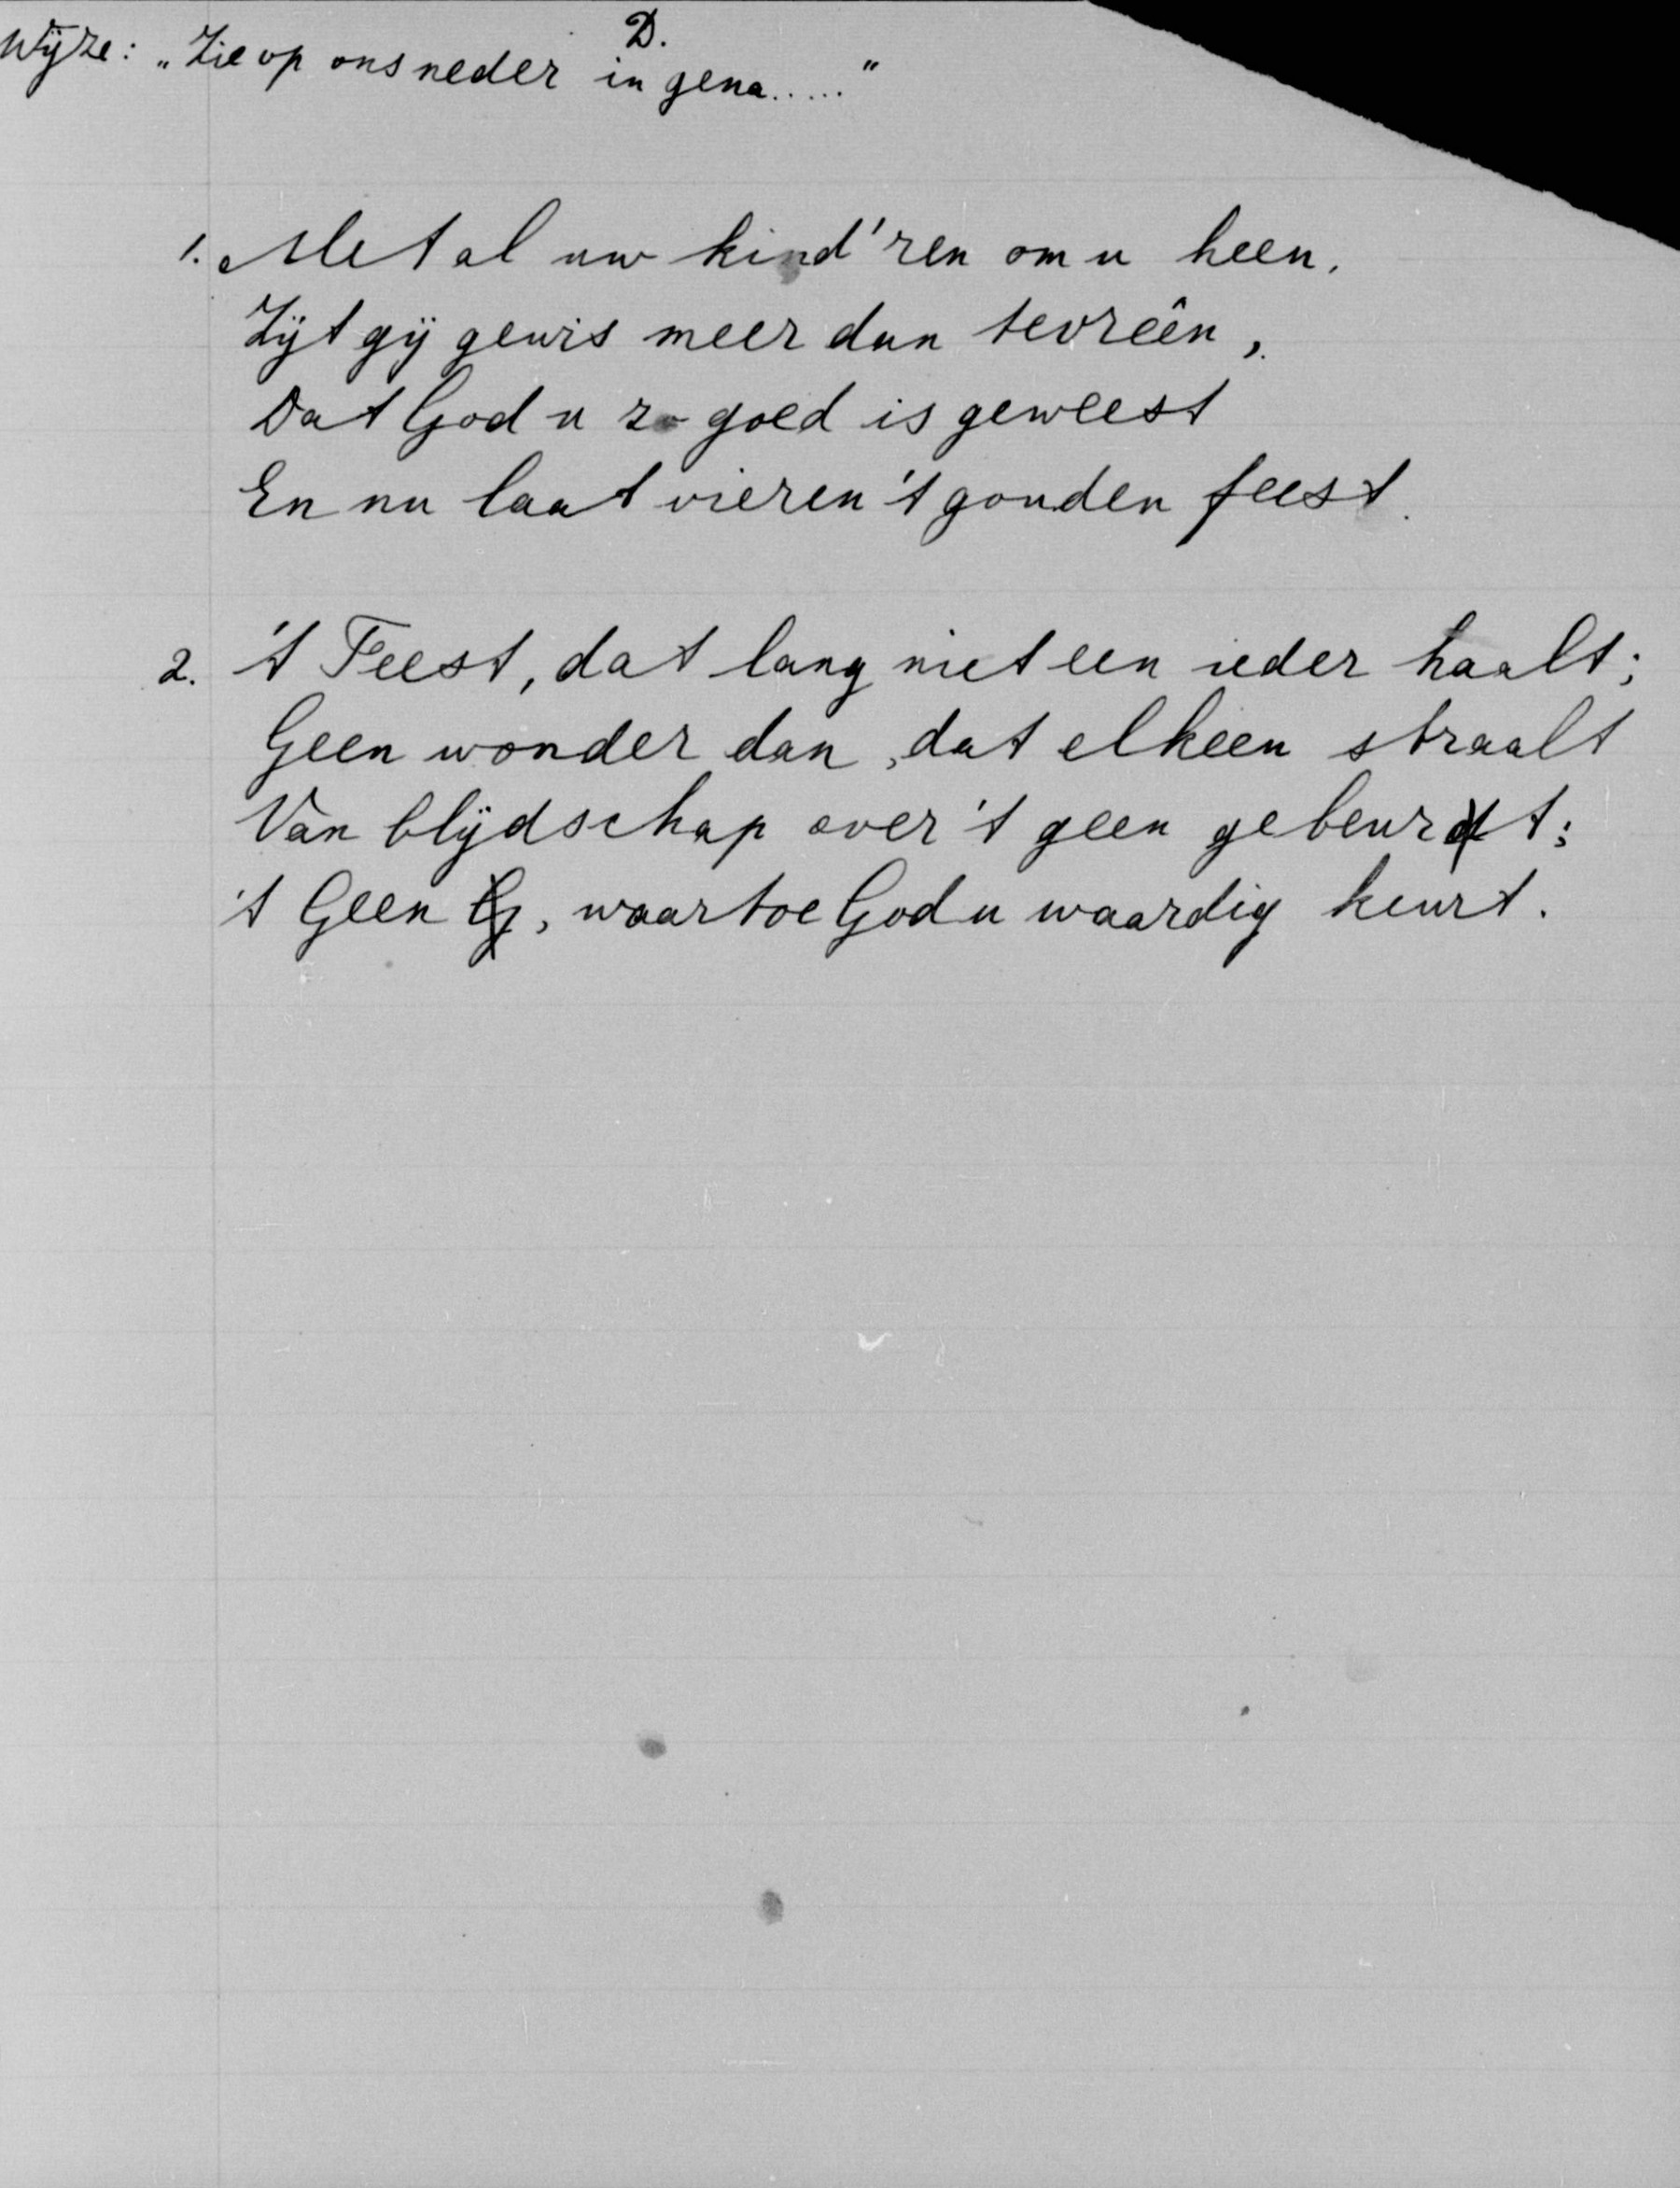 D.
Wijze: „Zie op ons neder in gena....."
1. Met al uw kind'ren om u heen,
Zijt gij gewis meer dan tevreên,
Dat God u zo goed is geweest
En nu laat vieren 't gouden feest.
2. 't Feest, dat lang niet een ieder haalt;
Geen wonder dan, dat elkeen straalt
Van blijdschap over 't geen gebeurt;
't Geen, waartoe God u waardig keurt.